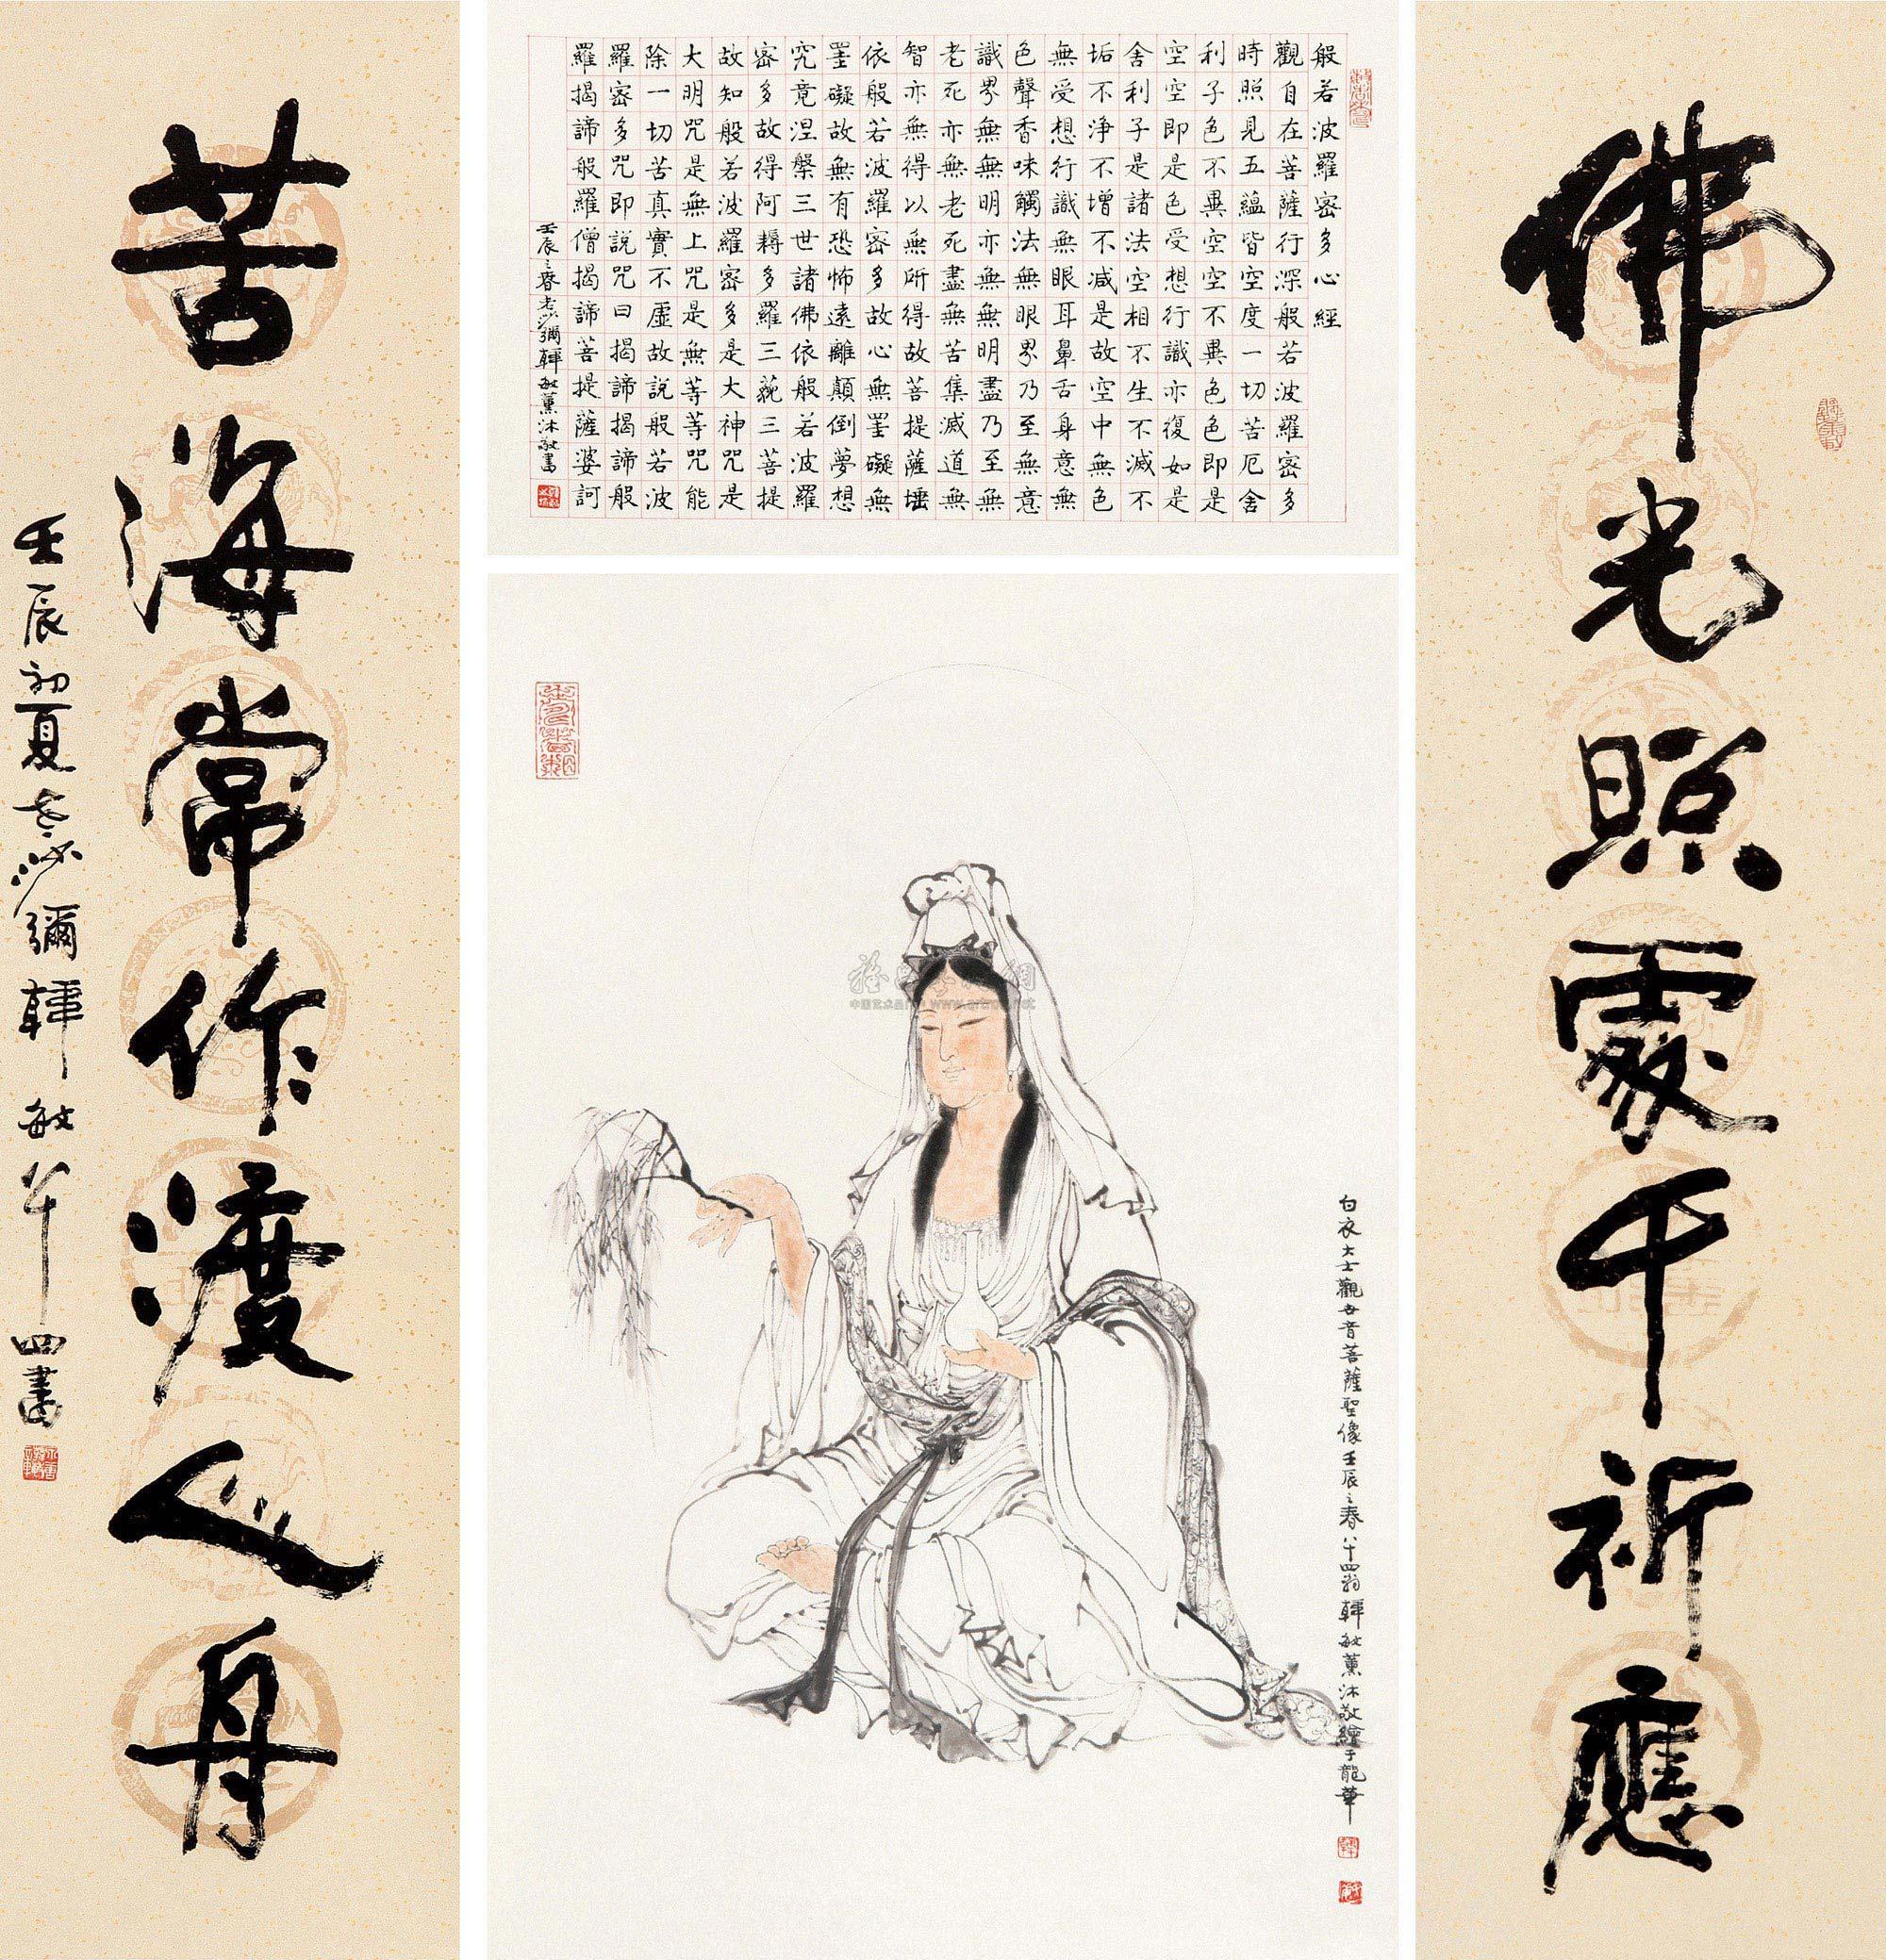 佛光照處千祈應
般若波羅密多心經
觀自在菩薩行深般若波羅密多
時照見五蘊皆空度一切苦厄舍
利子色不異空空不異色色即是
空空即是色受想行識亦復如是
舍利子是諸法空相不生不滅不
垢不淨不增不減是故空中無色
無受想行識無眼耳鼻舌身意無
色聲香味觸法無眼界乃至無意
識界無無明亦無無明盡乃至無
老死亦無老死盡無苦集滅道無
智亦無得以無所得故菩提薩埵
依般若波羅密多故心無罣礙無
罣礙故無有恐怖遠離顛倒夢想
究竟涅槃三世諸佛依般若波羅
密多故得阿耨多羅三藐三菩提
故知般若波羅密多是大神咒是
大明咒是無上咒是無等等咒能
除一切苦真實不虛故說般若波
羅密多咒即說咒曰揭諦揭諦般
羅揭諦般羅僧揭諦菩提薩婆訶
壬辰之春老沙彌韓敏薰沐敬書
白衣大士觀世音菩薩聖像壬辰之春八十四翁韓敏薰沐敬繪于龍華
苦海常作渡人舟
壬辰初夏老沙彌韓敏八十四書